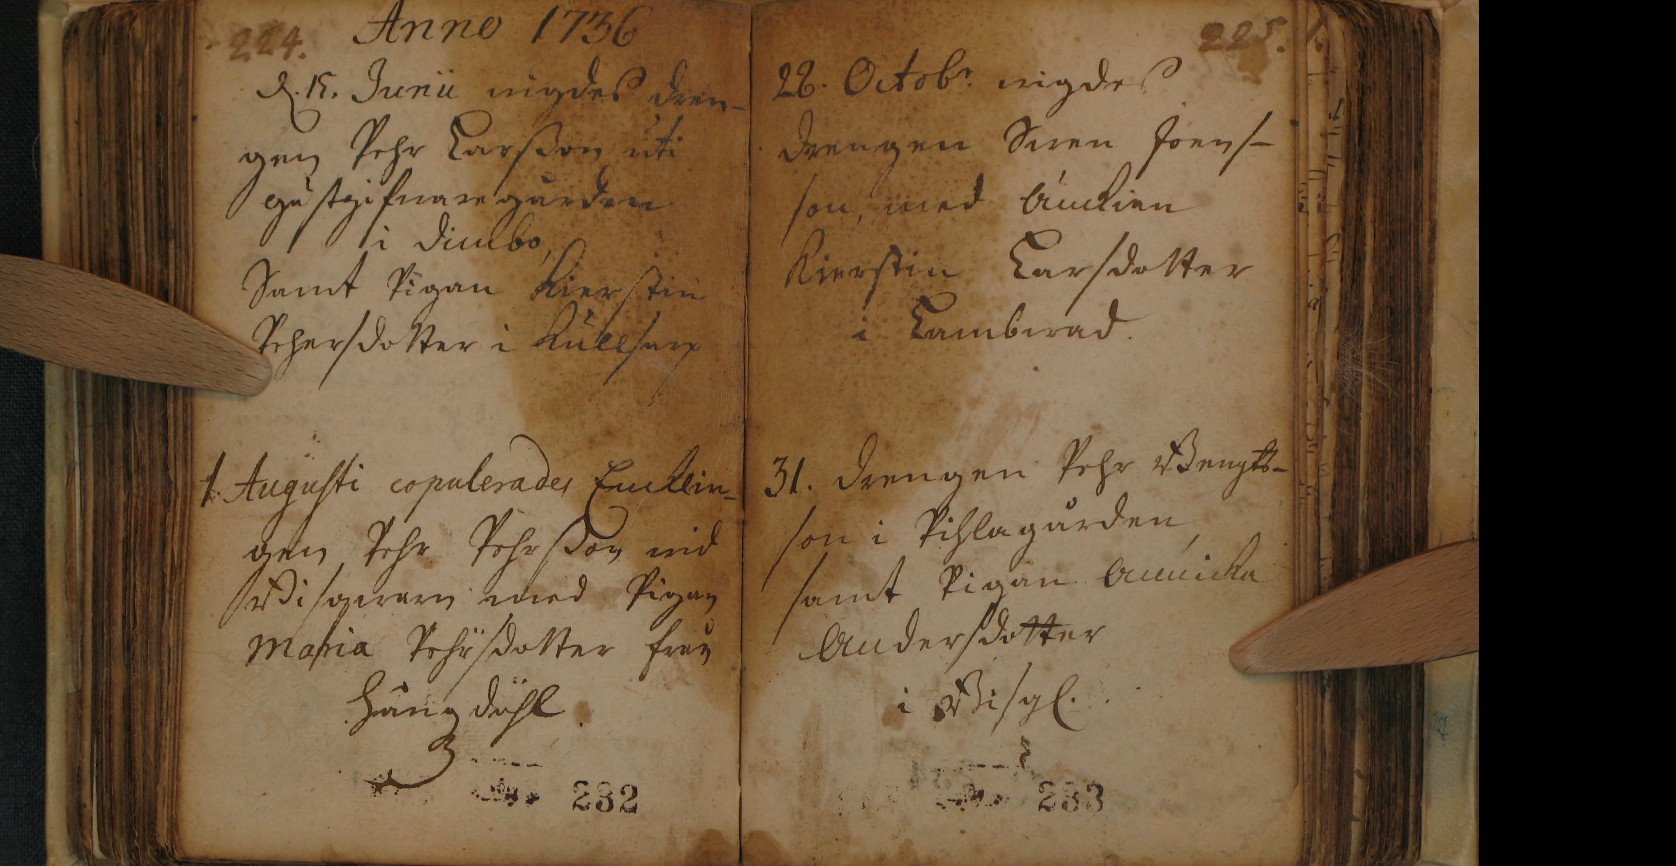 224.
Anno 1736
d. 15. Junii wigdes dren-
gen Pehr Larsson uti
gästgifware gården
i Dimbo,
Samt Pigan Kierstin
Pehersdotter i Kullsarp
1. Augusti copulerades Enklin-
gen Pehr Pehrsson wid
med Pigan
Maria Pehrsdotter frän
Hångdahl.
232
225.
28. Octobr. wigdes
drengen Swen Joens-
son, med Änkien
Kierstin Larsdotter
i Lamberad.
31. drengen Pehr Bengts-
son i Pihlagården,
samt Pigan Annicka
Andersdotter
i
233